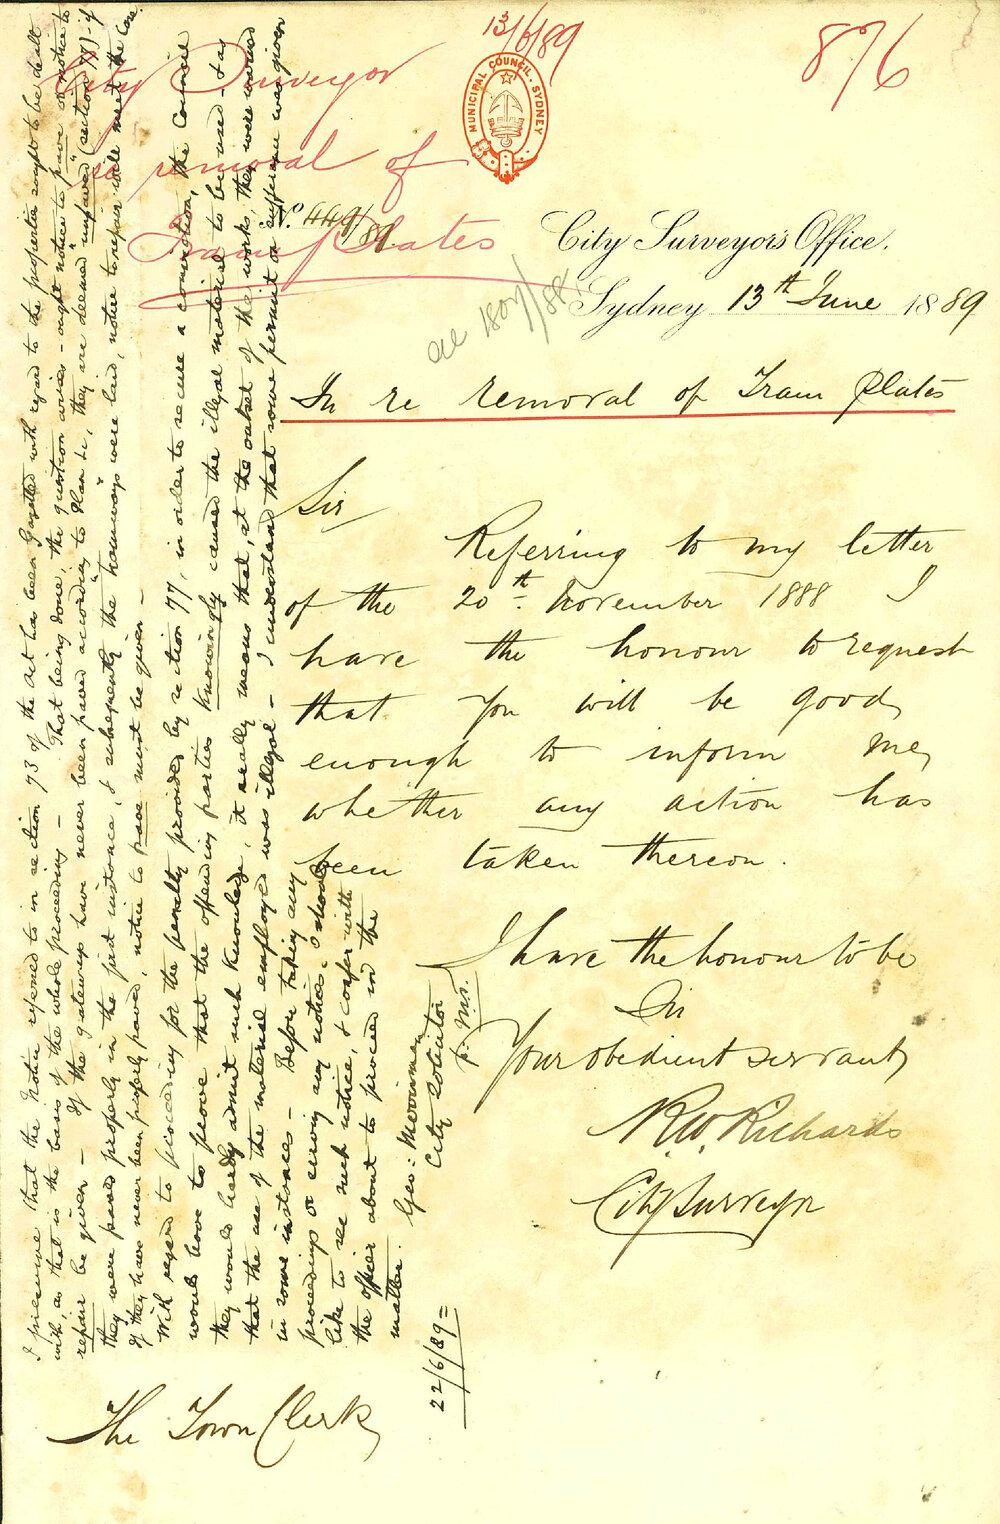 13/6/89
876
City Surveyor
re removal of
Tram Plates
MUNICIPAL COUNCIL. SYDNEY
No. 449/89.
City Surveyor's Office.
Sydney 13th June 1889
In re removal of Tram Plates
Sir
Referring to my letter
of the 20th November 1888 I
have the honour to request
that you will be good
enough to inform me,
whether any action has
been taken thereon.
I have the honour to be
Sir
Your obedient servant
R W Richards
City Surveyor
The Town Clerk
I presume that the Notice referred to in section 73 of the Act has been Gazetted with regard to the properties sought to be dealt
with, as that is the basis of the whole proceeding - That being done, the question arises - ought notice to "pave" or notice to
repair be given - If the gateways have never been paved according to Plan &c, they are deemed "unpaved" (section 77) - if
they were paved properly in the first instance, & subsequently the "tramways" were laid, notice to repair will meet the case.
If they have never been properly paved, notice to pave must be given -
With regard to proceeding for the penalty provided by section 77, in order to secure a conviction, the Council
would have to prove that the offending parties knowingly caused the illegal material to be used - & as
they would hardly admit such knowledge, it really means that, at the outset of the works, they were warned
that the use of the material employed was illegal - I understand that some permit or sufferance was given
in some instances - Before taking any
proceedings or serving any notices I should
like to see such notice, & confer with
the officer about to proceed in the
matter.
Geo: Merriman
City Solicitor
p. Ms.
22/6/89